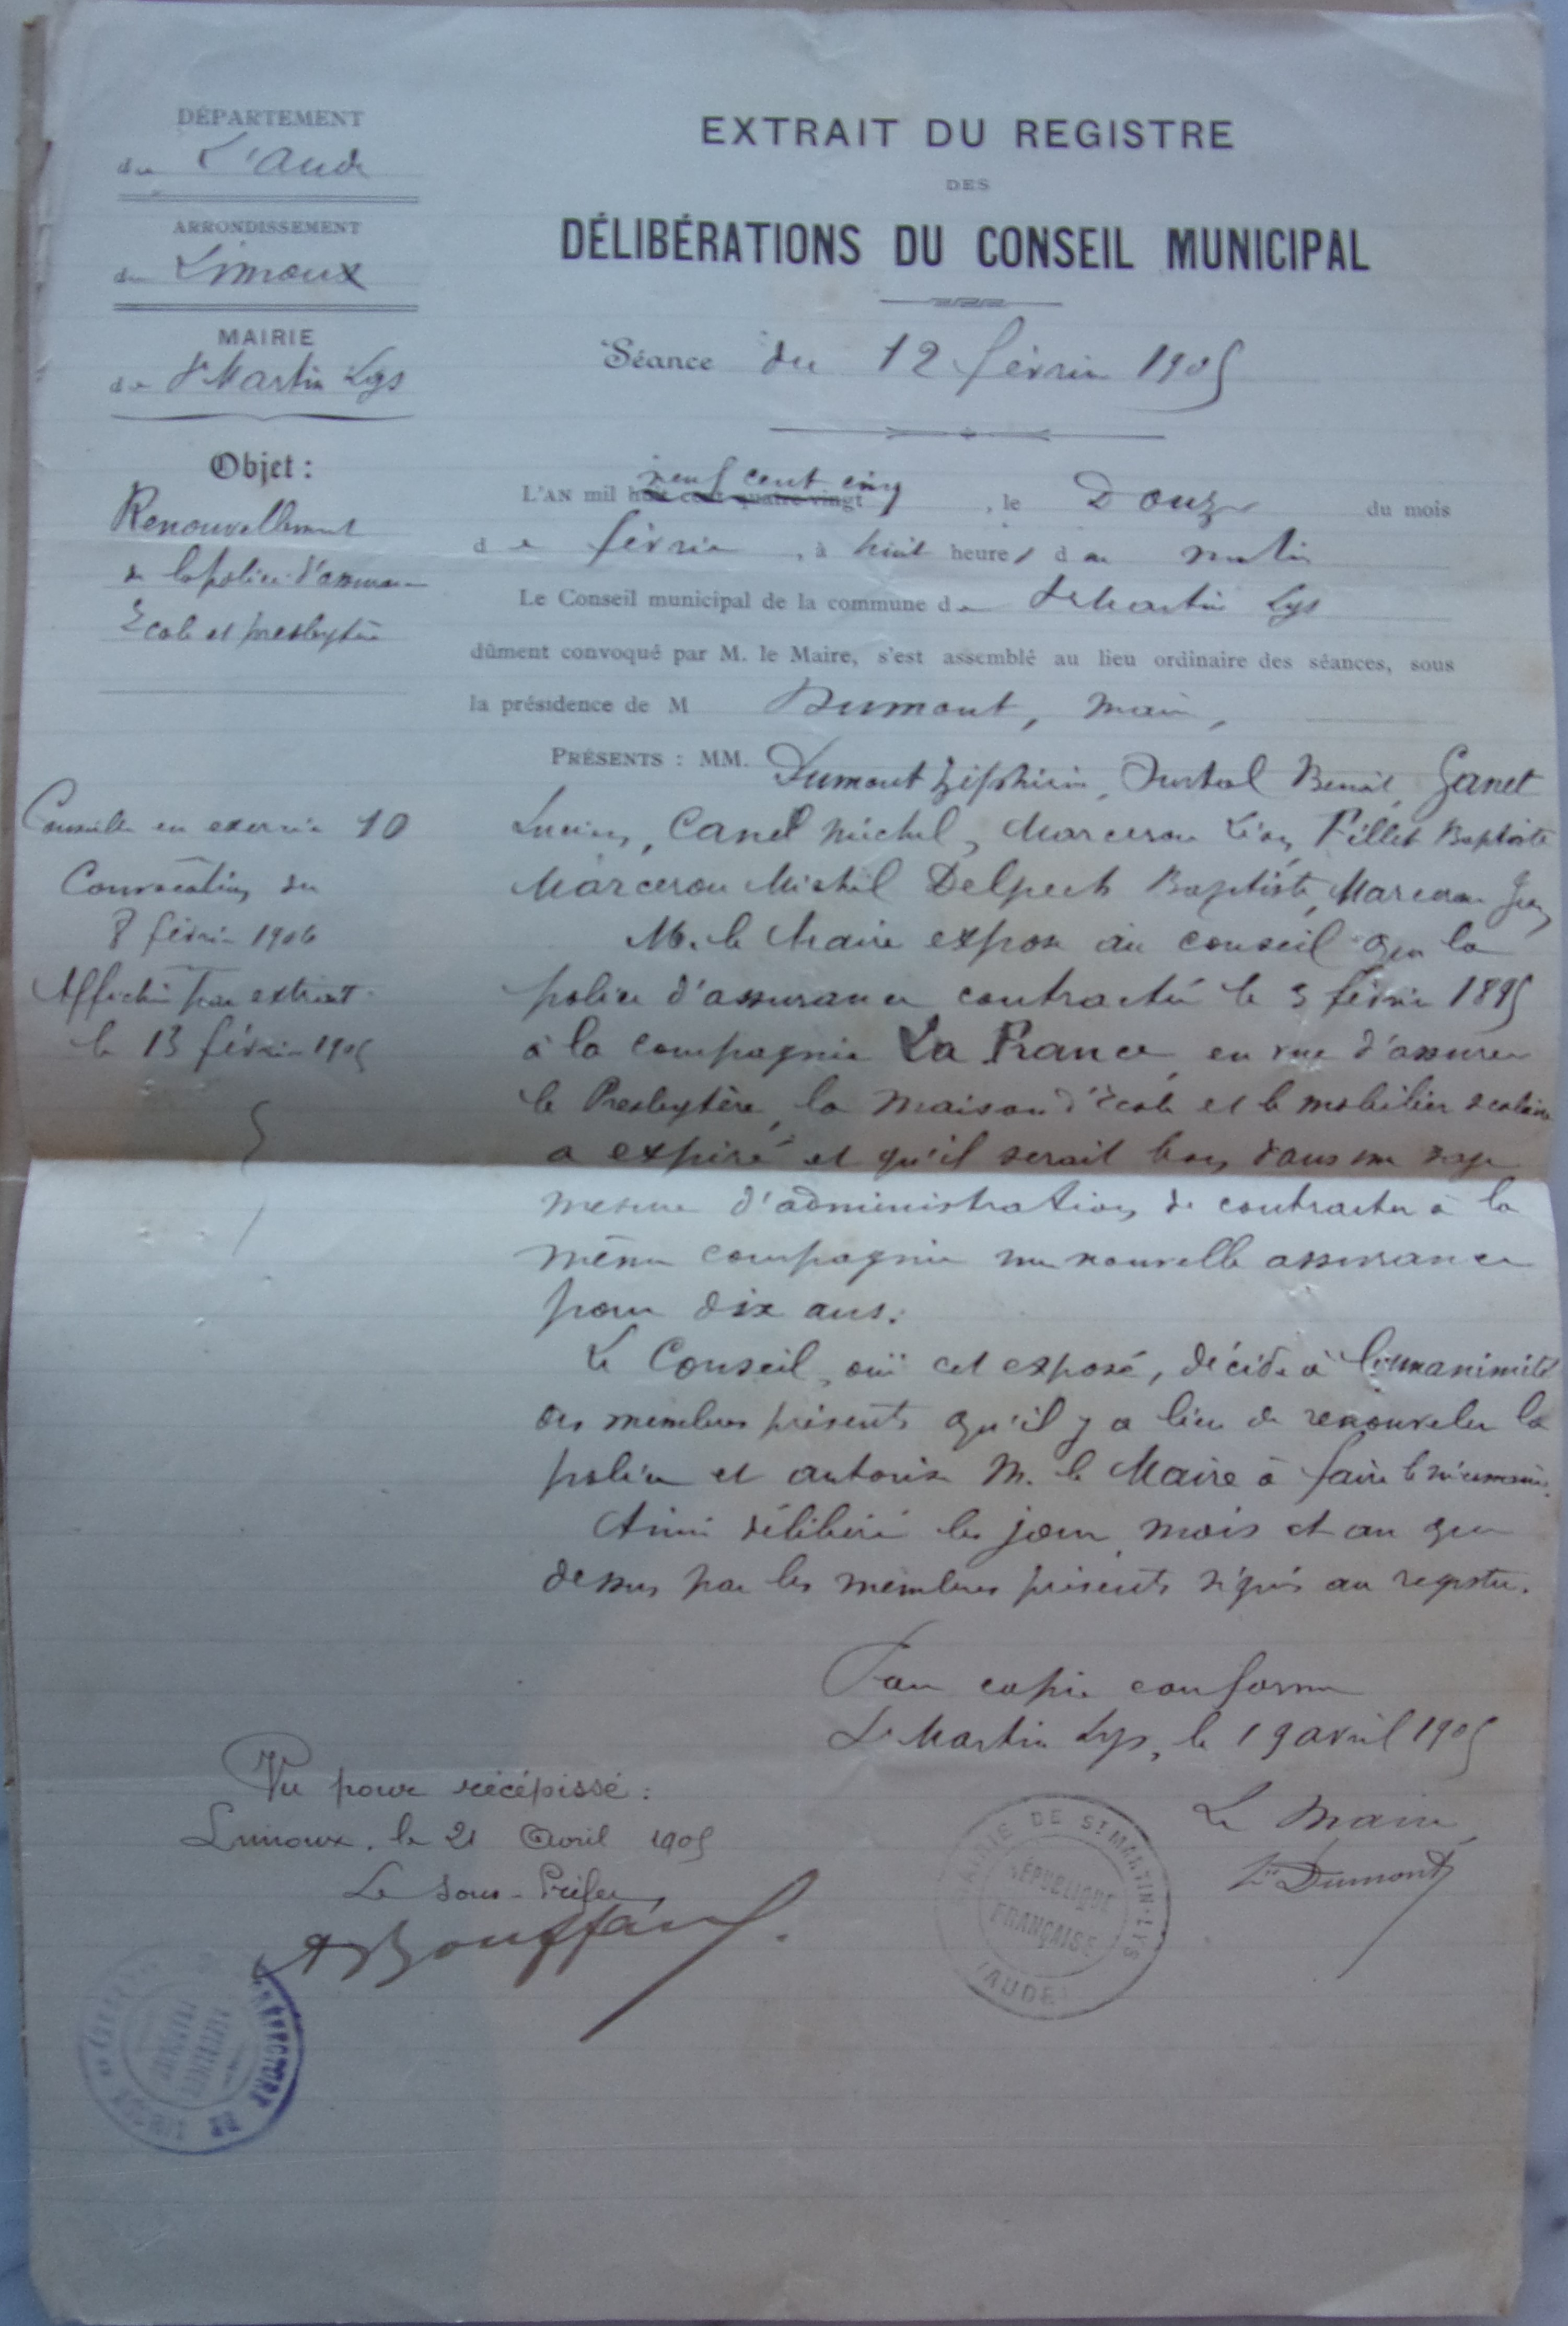 DÉPARTEMENT
de L'Aude
ARRONDISSEMENT
de Limoux
MAIRIE
de St Martin Lys
Objet :
Renouvellement
de la police d'assurance
École et presbytère
Conseillers en exercice 10
Convocation du
8 février 1906
Affiché par extrait
le 13 février 1905
EXTRAIT DU REGISTRE
DES
DÉLIBÉRATIONS DU CONSEIL MUNICIPAL
Séance du 12 février 1905
neuf cent cinq
L'AN mil huit cent quatre-vingt , le Douze du mois
de février , à huit heures du matin
Le Conseil municipal de la commune de St Martin Lys
dûment convoqué par M. le Maire, s'est assemblé au lieu ordinaire des séances, sous
la présidence de M Dumont, Maire,
PRÉSENTS : MM. Dumont Zéphirin, Benoit, Ganet
Lucien, Canel Michel, Marceron Léon, Fillet Baptiste
Marcerou Michel Delpech Baptiste, Marcerou Jean
M. le Maire expose au conseil que la
police d'assurance contractée le 3 février 1895
à la compagnie La France, en vue d'assurer
le Presbytère, la maison d'école et le mobilier scolaire
a expiré et qu'il serait bon, dans une sage
mesure d'administration, de contracter à la
même compagnie une nouvelle assurance
pour dix ans.
Le Conseil, ouï cet exposé, décide à l'unanimité
des membres présents qu'il y a lieu de renouveler la
police et autorise M. le Maire à faire le nécessaire.
Ainsi délibéré les jour, mois et an que
dessus par les membres présents signés au registre.
Pour copie conforme
St Martin Lys, le 19 avril 1905
Le Maire
Zin Dumont
MAIRIE DE ST MARTIN-LYS
RÉPUBLIQUE
FRANÇAISE
(AUDE)
Vu pour récépissé :
Limoux, le 21 Avril 1905
Le Sous-Préfet
PRÉFECTURE DE